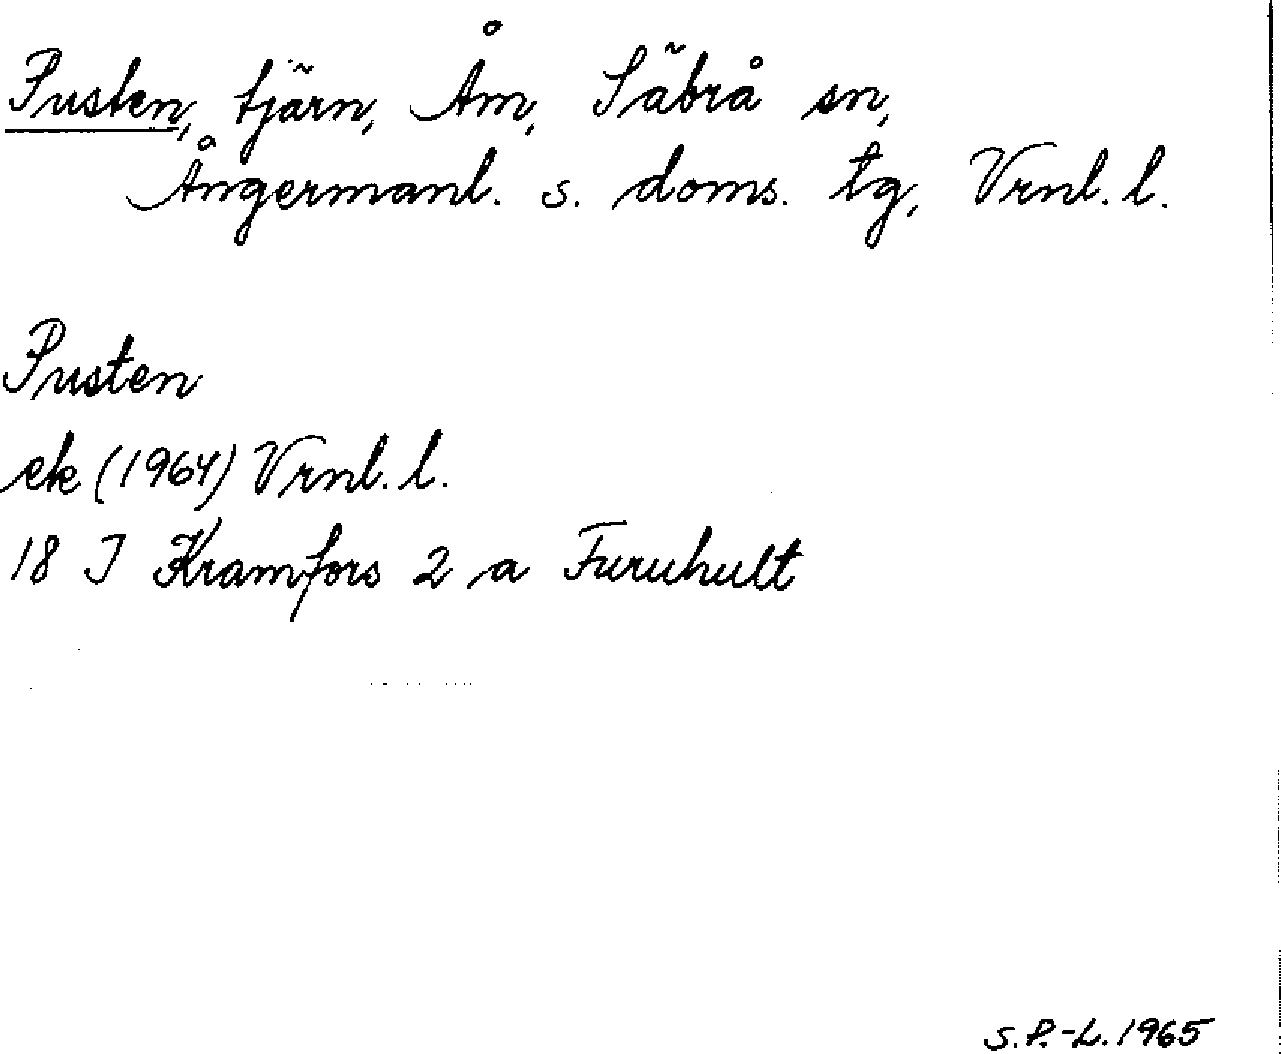 Pusten, tjärn, Åm, Säbrå sn,
Ångermanl. s. doms. tg, Vrnl. l.
Pusten
ek (1964) Vrnl. l.
18 I Kramfors 2 a Furuhult
S.P.-L. 1965